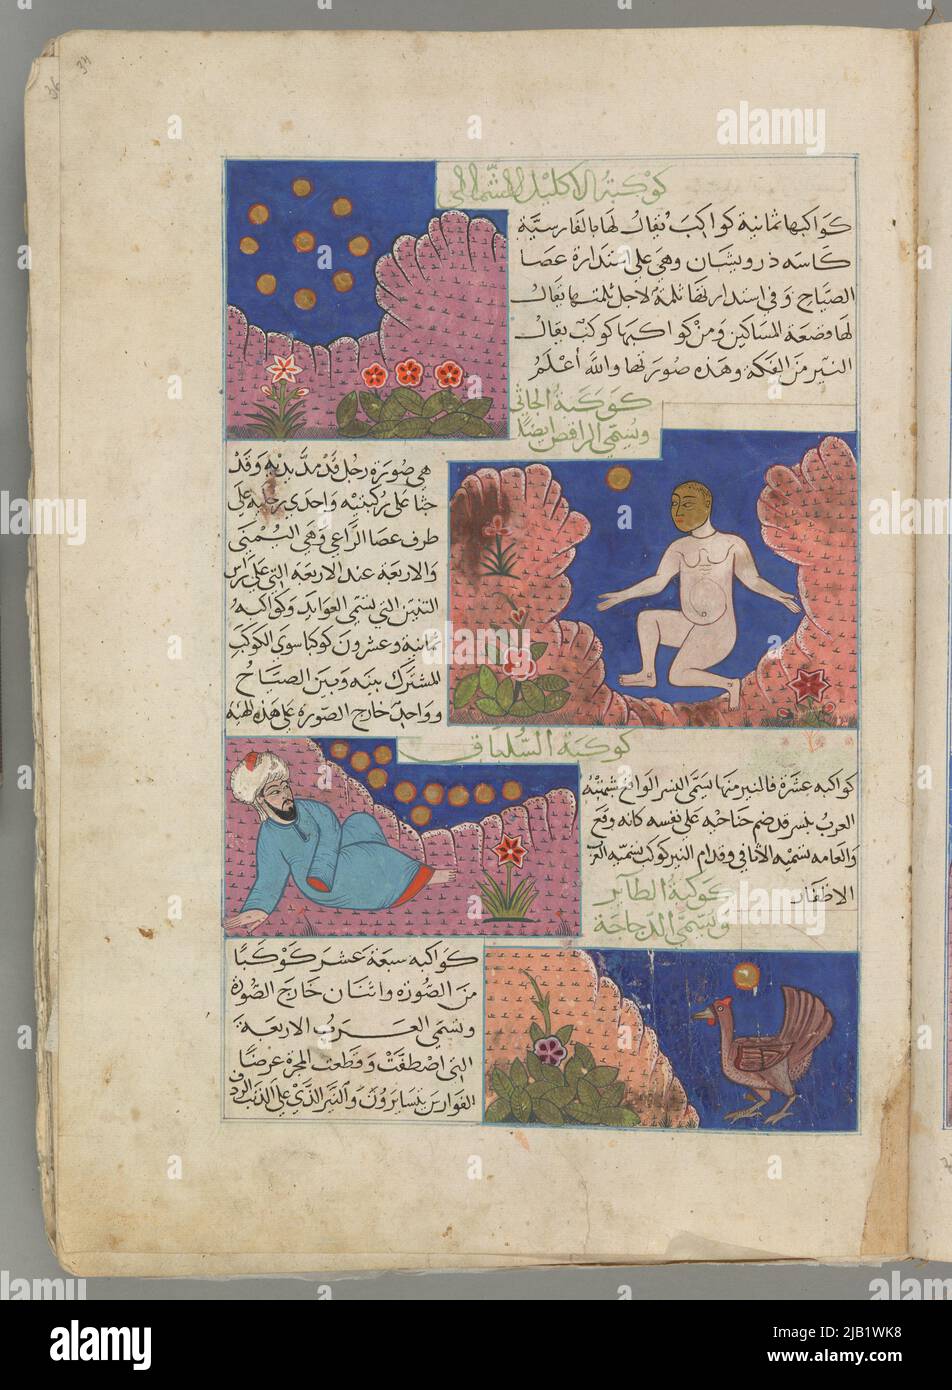 كوكبة الاكليل الشمالي
كواكبها ثمانية كواكب يقال لها بالفارسية
كاسه درويشان وهي على استدارة عصا
الصياح وفي استدارتها ثلمة لاجل ثلمتها يقال
لها قصعة المساكين ومن كواكبها كوكب يقال
النير من الفكة وهذه صورتها والله أعلم
كوكبة الجاثي
ويسمى الراقص ايضا
هي صورة رجل قد مد يديه وقد
جثا على ركبتيه واحدى رجليه على
طرف عصا الراعي وهي اليمنى
والاربعة عند الاربعة التي على راس
التنين التي تسمى العوايد وكواكبه
ثمانية وعشرون كوكبا سوى الكوكب
المشترك بينه وبين الصياح
وواحد خارج الصورة على هذه
كوكبة السلياق
كواكبه عشرة فالنير منها تسمى النسر الواقع شبهته
العرب بنسر قد ضم جناحيه على نفسه كانه وقع
والعامه تسميه الاثافي وقدام النير كوكب تسميه العرب
الاظفار
كوكبة الطاير
وتسمى الدجاجة
كواكبه سبعة عشر كوكبا
من الصورة واثنان خارج الصورة
وتسمى العرب الاربعة
التي اصطفت وقطعت المجرة عرضا
الفوارس والنير الذي على الذنب الردف
34
36
alamy
Image ID: 2JB1WK8
www.alamy.com